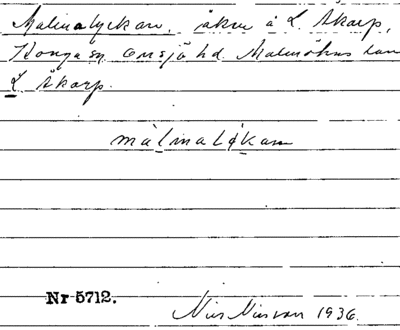 Malinalyckan, åker å L. Åkarp,
Konga sn Onsjö hd. Malmöhus län
L. Åkarp.
màlinaløkan
Nr 5712.
Nils Nilsson 1936.